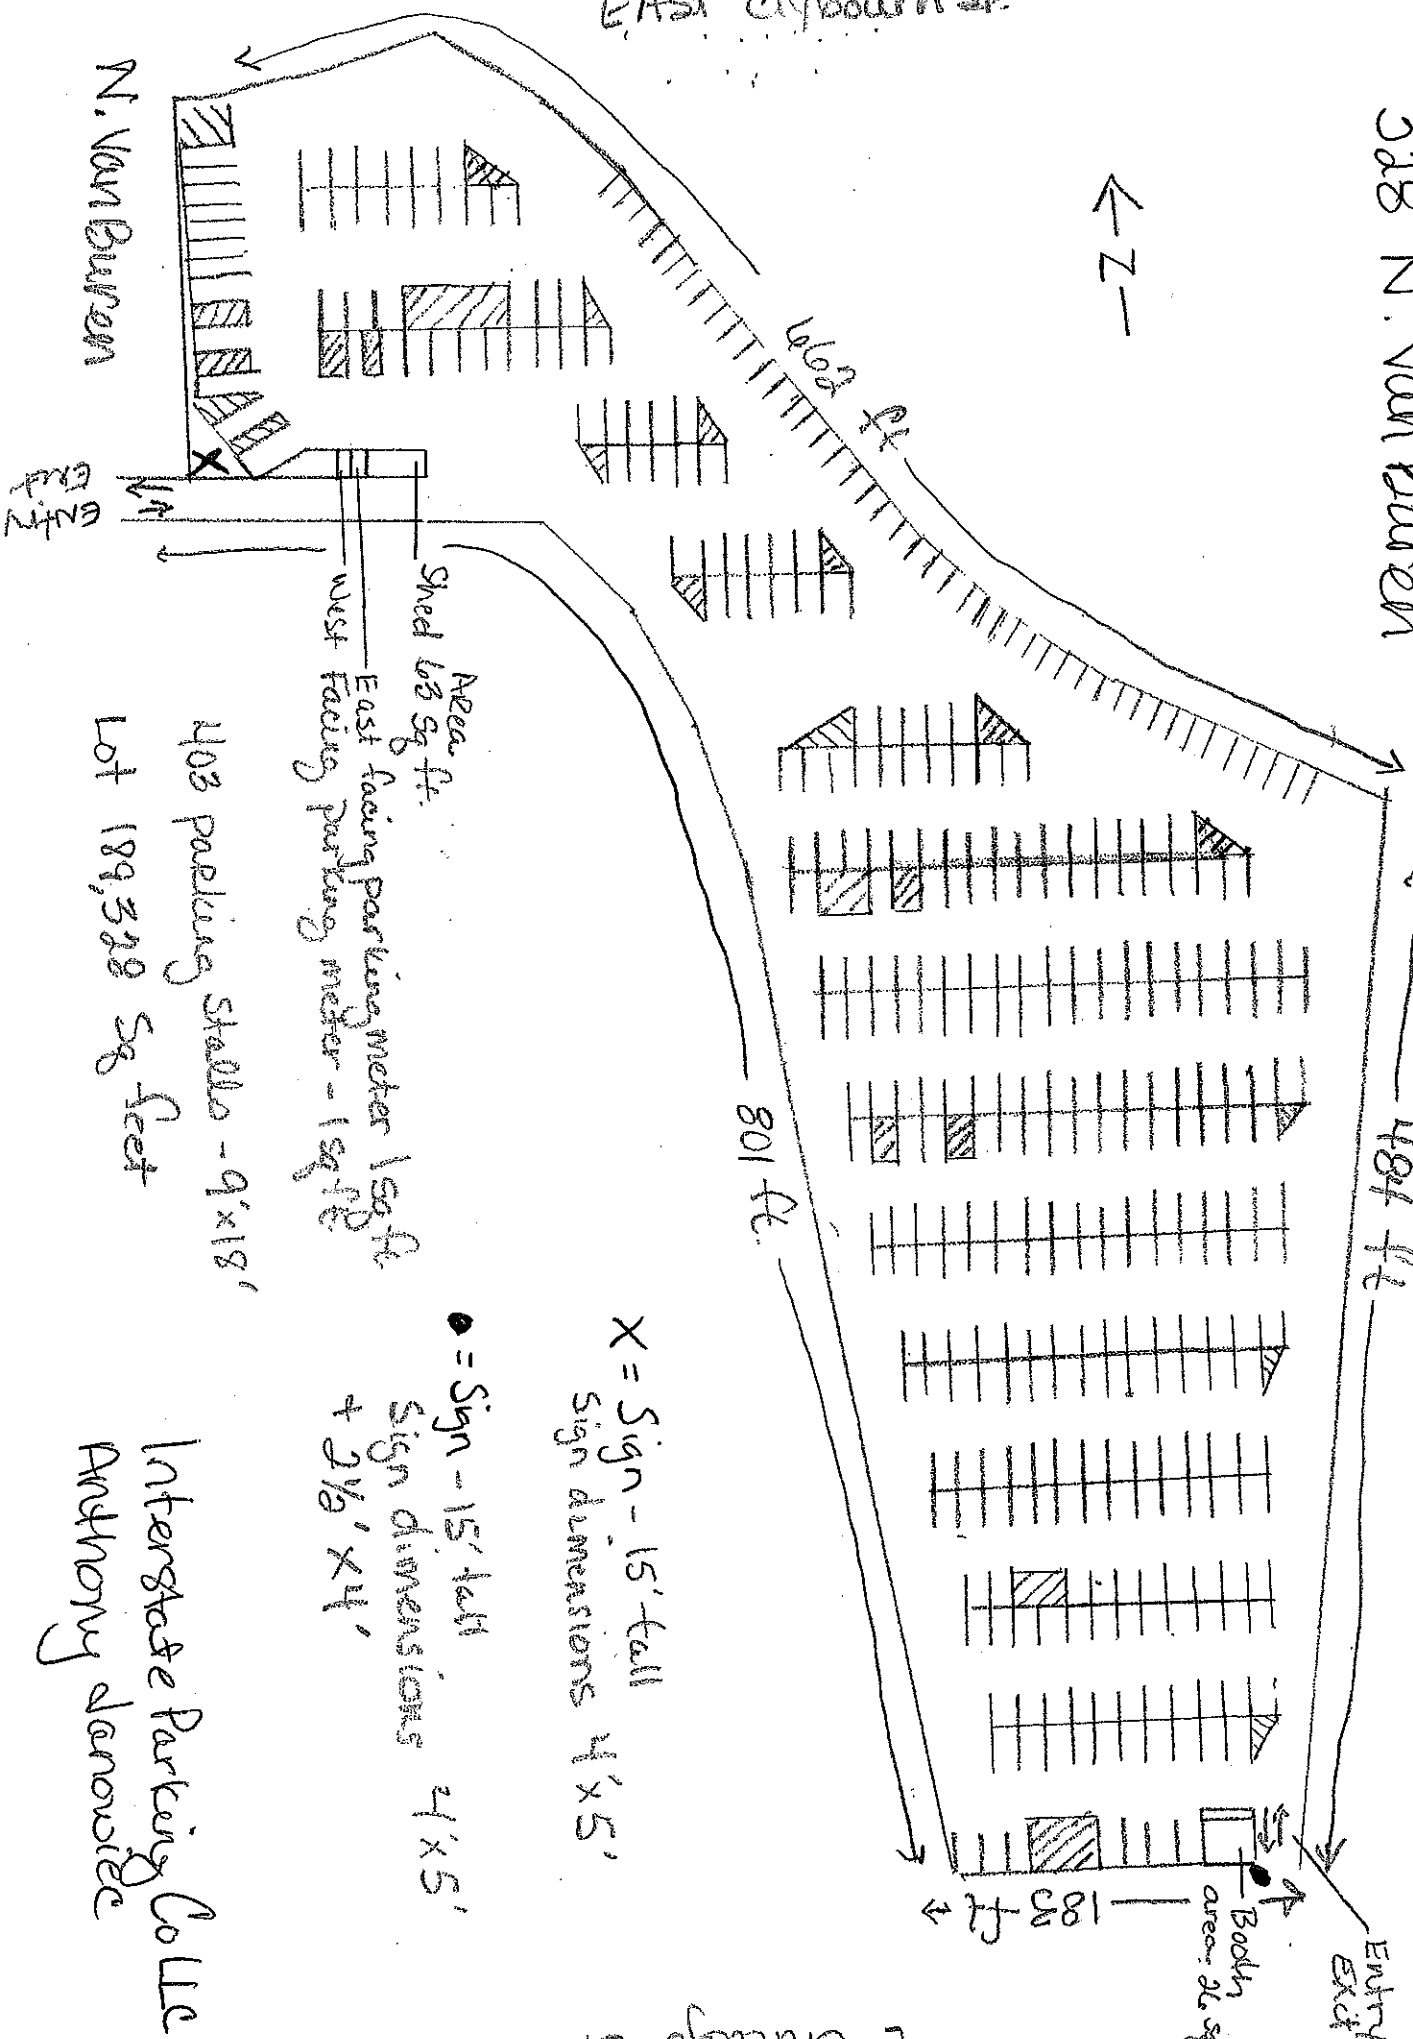 328 N. Van Buren
EAST Clybourn St.
N. Van Buren
←Z—
662 ft
484 ft
801 ft.
183 ft
Entry
Exit
Booth
area: 26 sq
Ent
Exit
Area
Shed 63 sq ft.
East facing parking meter 1 sq ft
West Facing parking meter - 1 sq ft
403 parking stalls - 9'x18'
Lot 189,328 Sq feet
X = Sign - 15' tall
Sign dimensions 4'x5'
● = Sign - 15' tall
Sign dimensions 4'x5'
+ 2½' x 4'
Interstate Parking Co LLC
Anthony Janowiec